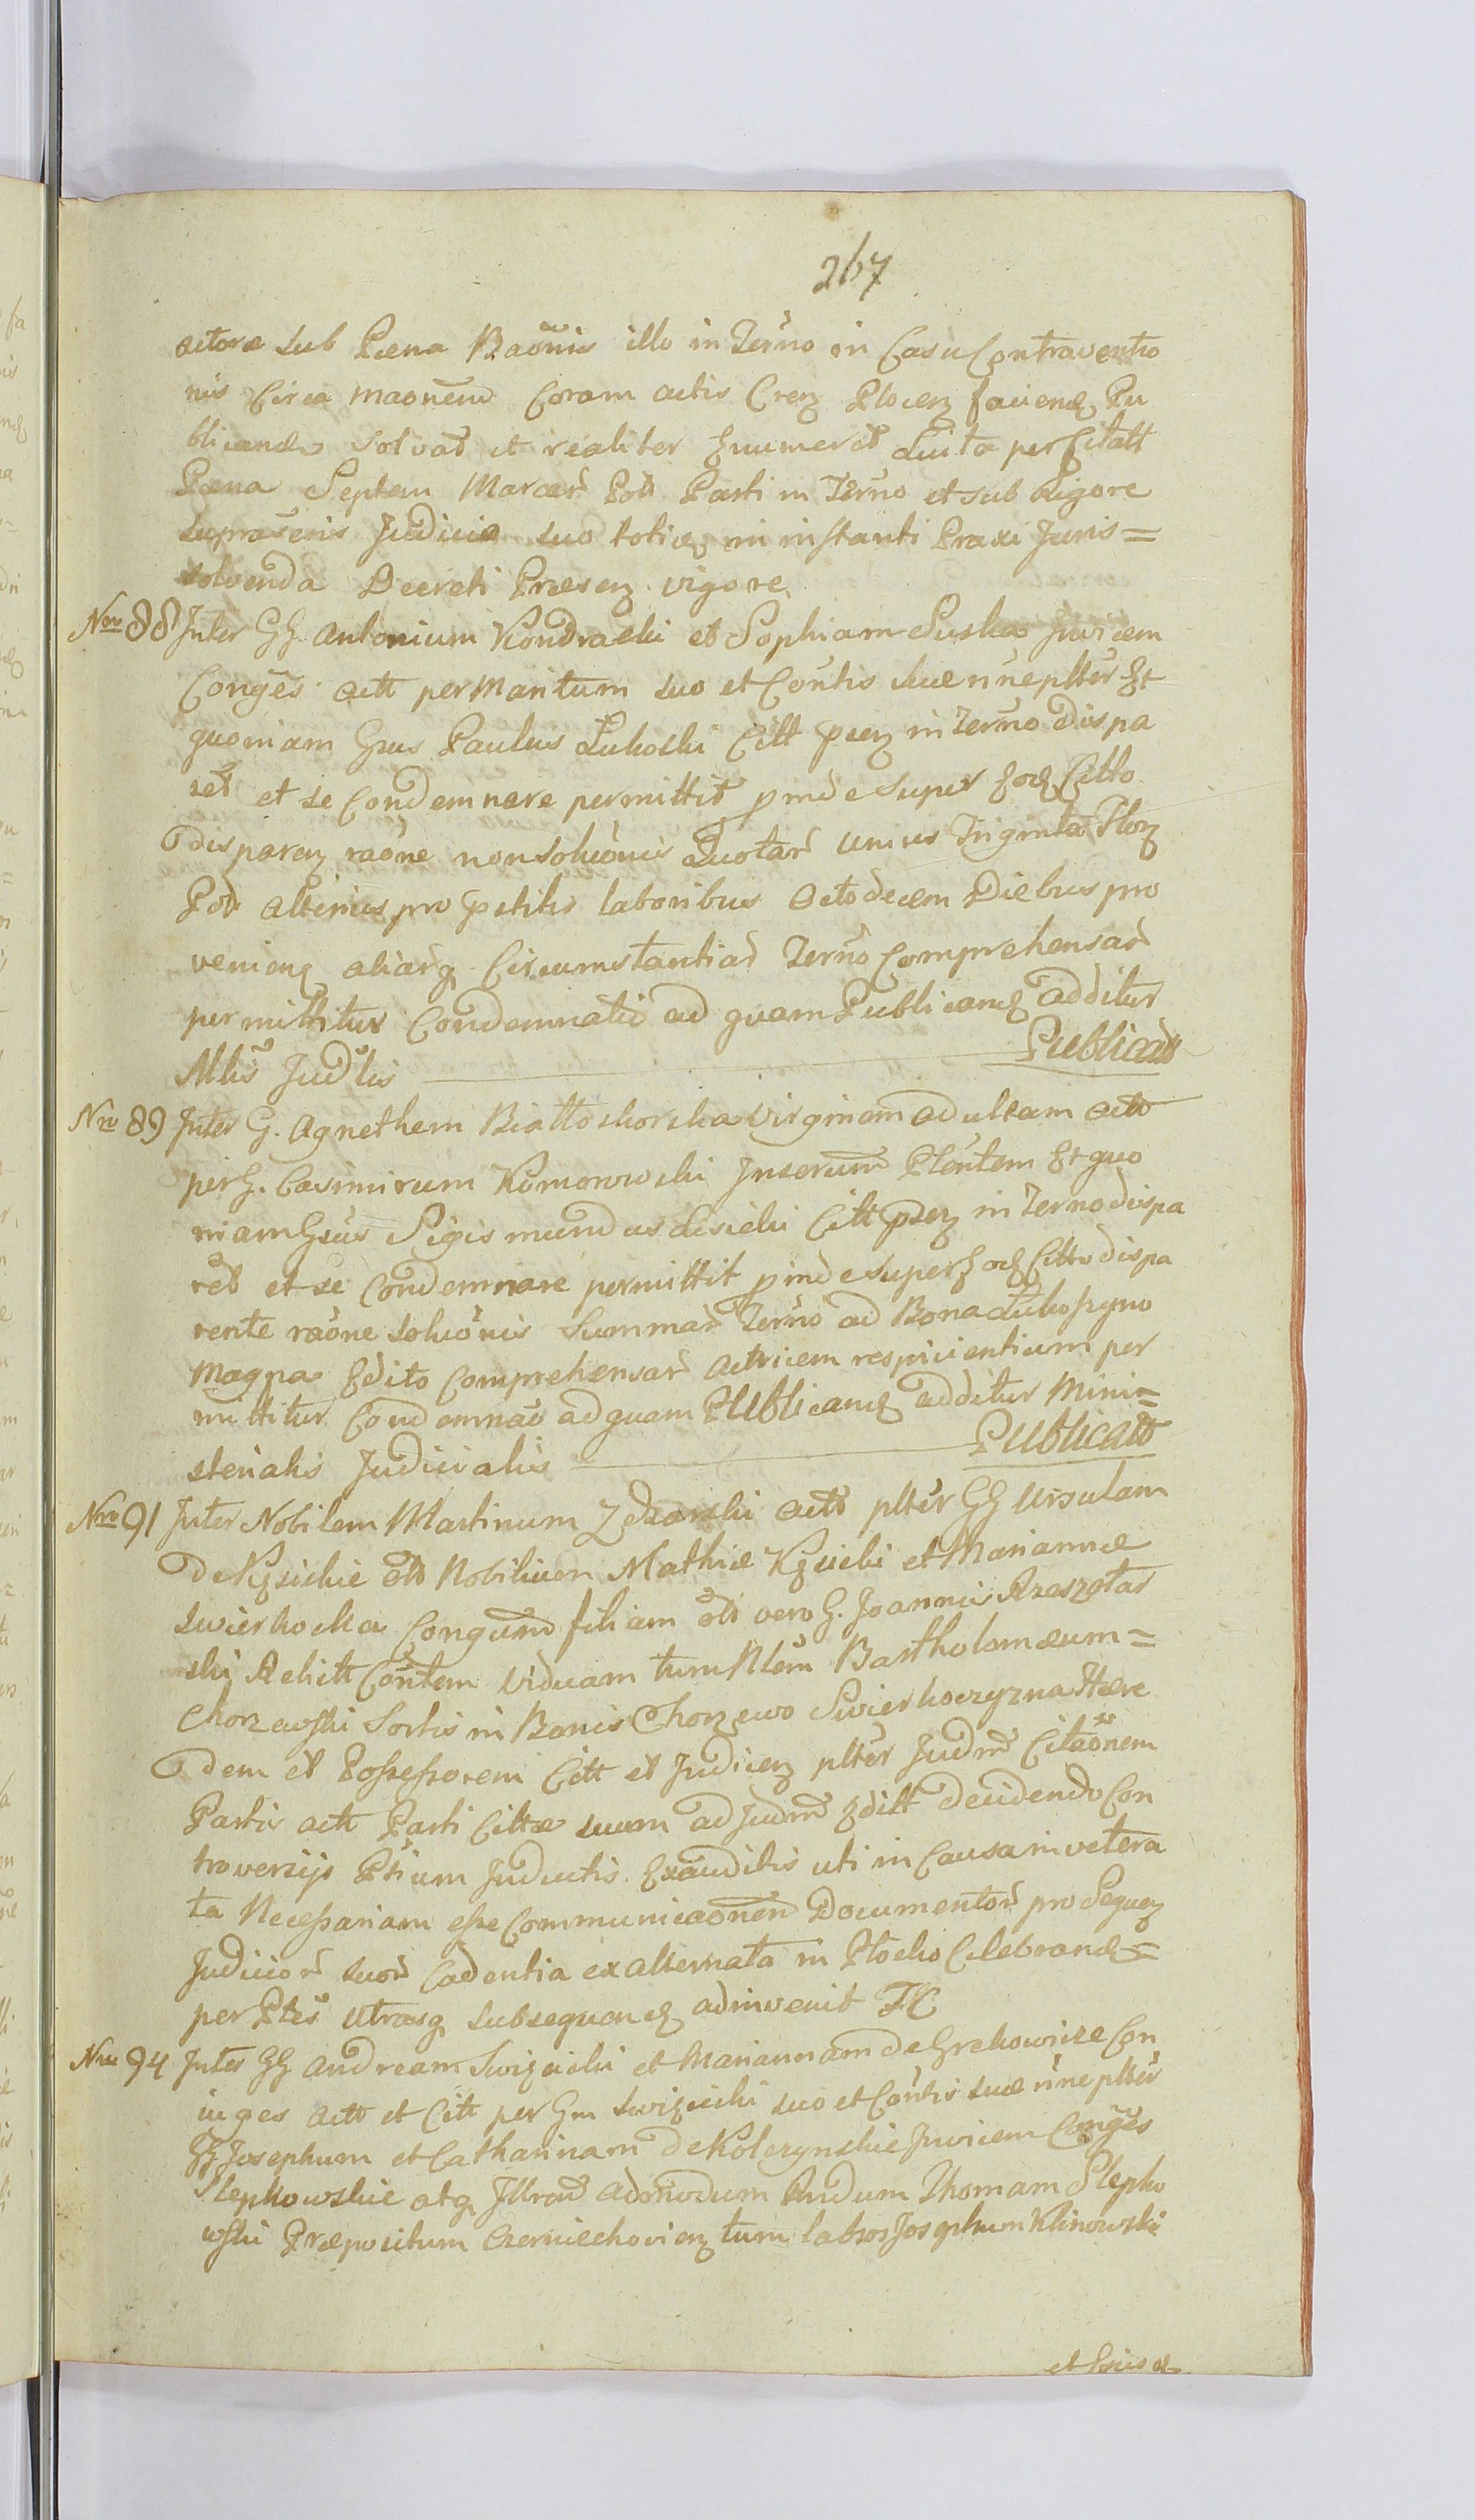 267
actoræ sub Pæna Baonis illo in Terno in Casu Contraventio
nis Circa maonem Coram actis Crenz Plocenz faciend Pu
blicandæ solvat et realiter Enumeret Luita per Citatt
Pæna Septem Marcar Pol Parti in Terno et sub Rigore
supraseris Judicio suo toties in instanti Praxi Juris=
solvenda Decreti Præsenz vigore
Nro 88 Inter GG. Antonium Kondracki et Sophiam Suska Invicem
Conges actt per Maritum suo et Contis suæ nne plter Et
quoniam Gnus Paulus Lukoski Citt psenz in Terno dispa
ret et se Condemnare permittit pinde super Eod Citto
disparenz raone non soluonis Quotar unius Triginta Florz
Pol alterius pro pstitis laboribus Octodecem Diebus pro
venienz aliarq Circumstantiar Terno Comprehensar
permittitur Condemnatio ad quam Publicand additur
Mlis Judlis Publicatt
Nro 89 Inter G. Agnethem Biattoskorska Virginem adultam actt
per G. Casimirum Komorowski Inserum Plentem Et quo
niam Gnus Sigismundus Lisicki Citt psenz in Terno dispa
ret et se Condemnare permittit pinde super Eod Citto dispa
rente raone soluonis Summar Terno ad Bona Lukoszyno
Magna Edito Comprehensar actricem respicientium per
mittitur Condemnao ad quam Publicand additur Mini=
sterialis Judicialis Publicatt
Nro 91 Inter Nobilem Martinum Zdzarski actt plter GG Ursulam
de Kzsickie olt Nobilium Mathiæ Kzsicki et Mariannæ
Swierkocka Congum filiam olt vero G. Joannis Rzeszotar
ski Relictt Contem Viduam tum Nlem Bartholomæum=
Chorzewski Sortis in Bonis Chorzewo Swierkoczyzna Hære
dem et Possessorem Citt et Judicenz plter Judm Citaonem
Partis actt Parti Cittæ suum ad Judm Editt decidendo Con
troversijs Ptium Inductis Exauditis uti in Causa invetera
ta Necessariam esse Communicaonem Documentor pro Sequenz
Judicior suor Cadentia ex alternata in Plocko Celebrand=
per Ptes utrasq subsequend adinvenit FC
Nro 94 Inter GG Andream Swizicki et Mariannam de Grekowicze Con
iuges actt et Citt per Gm Swizicki suo et Contis suæ nne plter
GG Josephum et Catharinam de Kolczynskie Invicem Conges
Slepkowskie atq Illrem admodum Rndum Thomam Slepko
wski Præpositum Czerniechovienz tum labsos Josephum Klinowski
et Gnis d